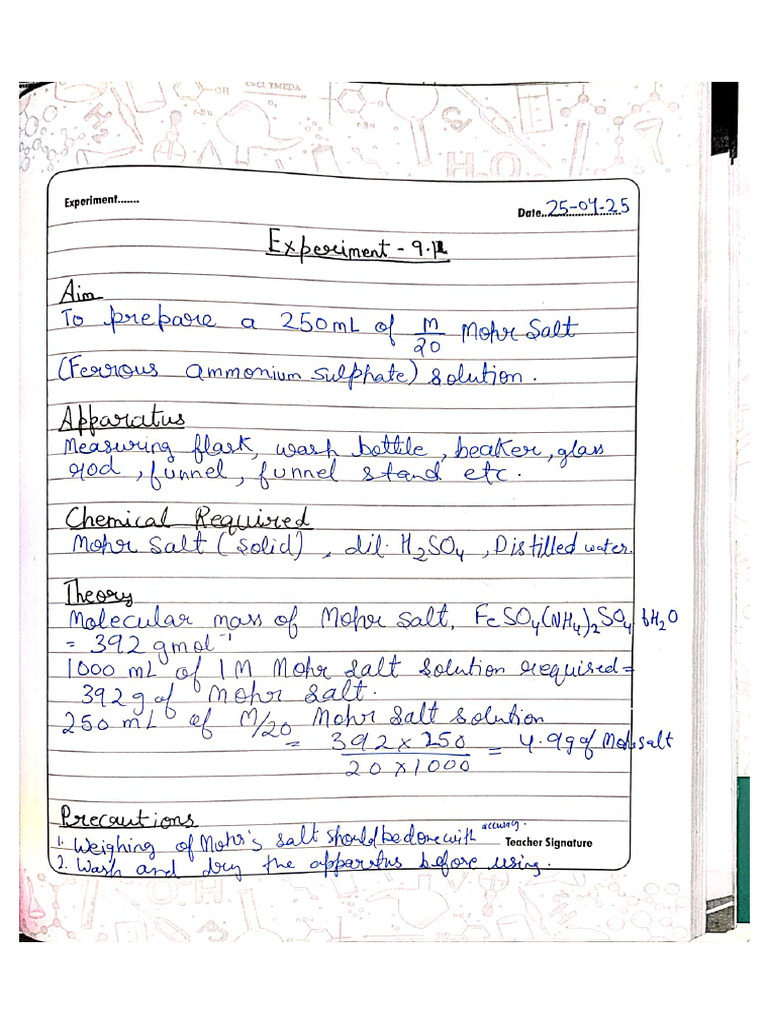 Experiment.......
Date..25-04-25
Experiment - 9.1
Aim
To prepare a 250mL of M/20 Mohr Salt
(Ferrous ammonium sulphate) solution.
Apparatus
Measuring flask, wash bottile, beaker, glass
rod, funnel, funnel stand etc.
Chemical Required
Mohr Salt (Solid), dil. H₂SO₄, Distilled water.
Theory
Molecular mass of Mohr Salt, FeSO₄(NH₄)₂SO₄ 6H₂O
= 392 gmol⁻¹
1000 mL of 1M Mohr salt solution required =
392g of Mohr salt.
250 mL of M/20 Mohr salt solution
= 392 x 250 / 20 x 1000 = 4.9g of Mohr salt
Precautions
1. Weighing of Mohr's salt should be done with accuracy.
Teacher Signature
2. Wash and dry the apparatus before using.